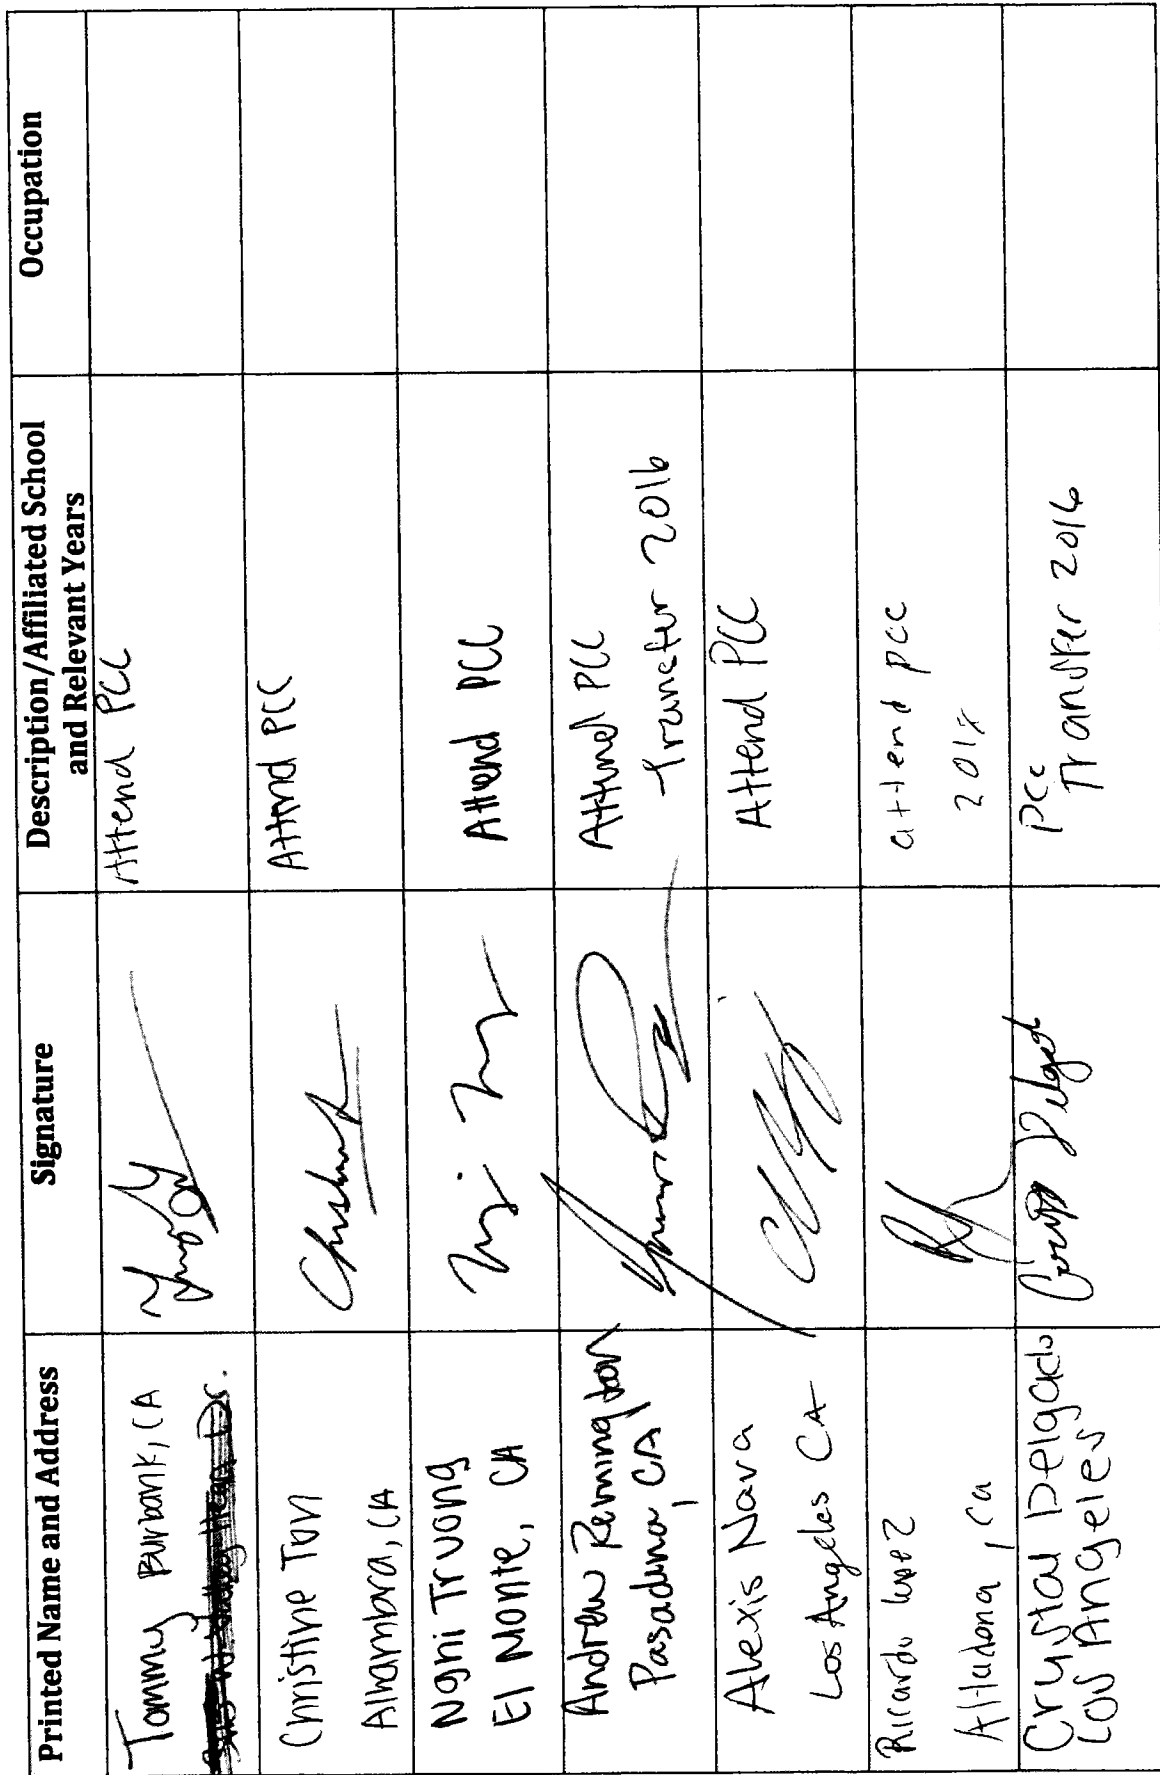 Printed Name and Address
Signature
Description/Affiliated School
and Relevant Years
Occupation
Tommy Burbank, CA
Attend PCC
Christine Ton
Alhambra, CA
Attend PCC
Nghi Truong
El Monte, CA
Attend PCC
Andrew Remington
Pasadena, CA
Attend PCC
Transfer 2016
Alexis Nava
Los Angeles CA
Attend PCC
Ricardo Lopez
Altadena, ca
attend pcc
Crystal Delgado
Los Angeles
Crystal Delgado
PCC
Transfer 2016